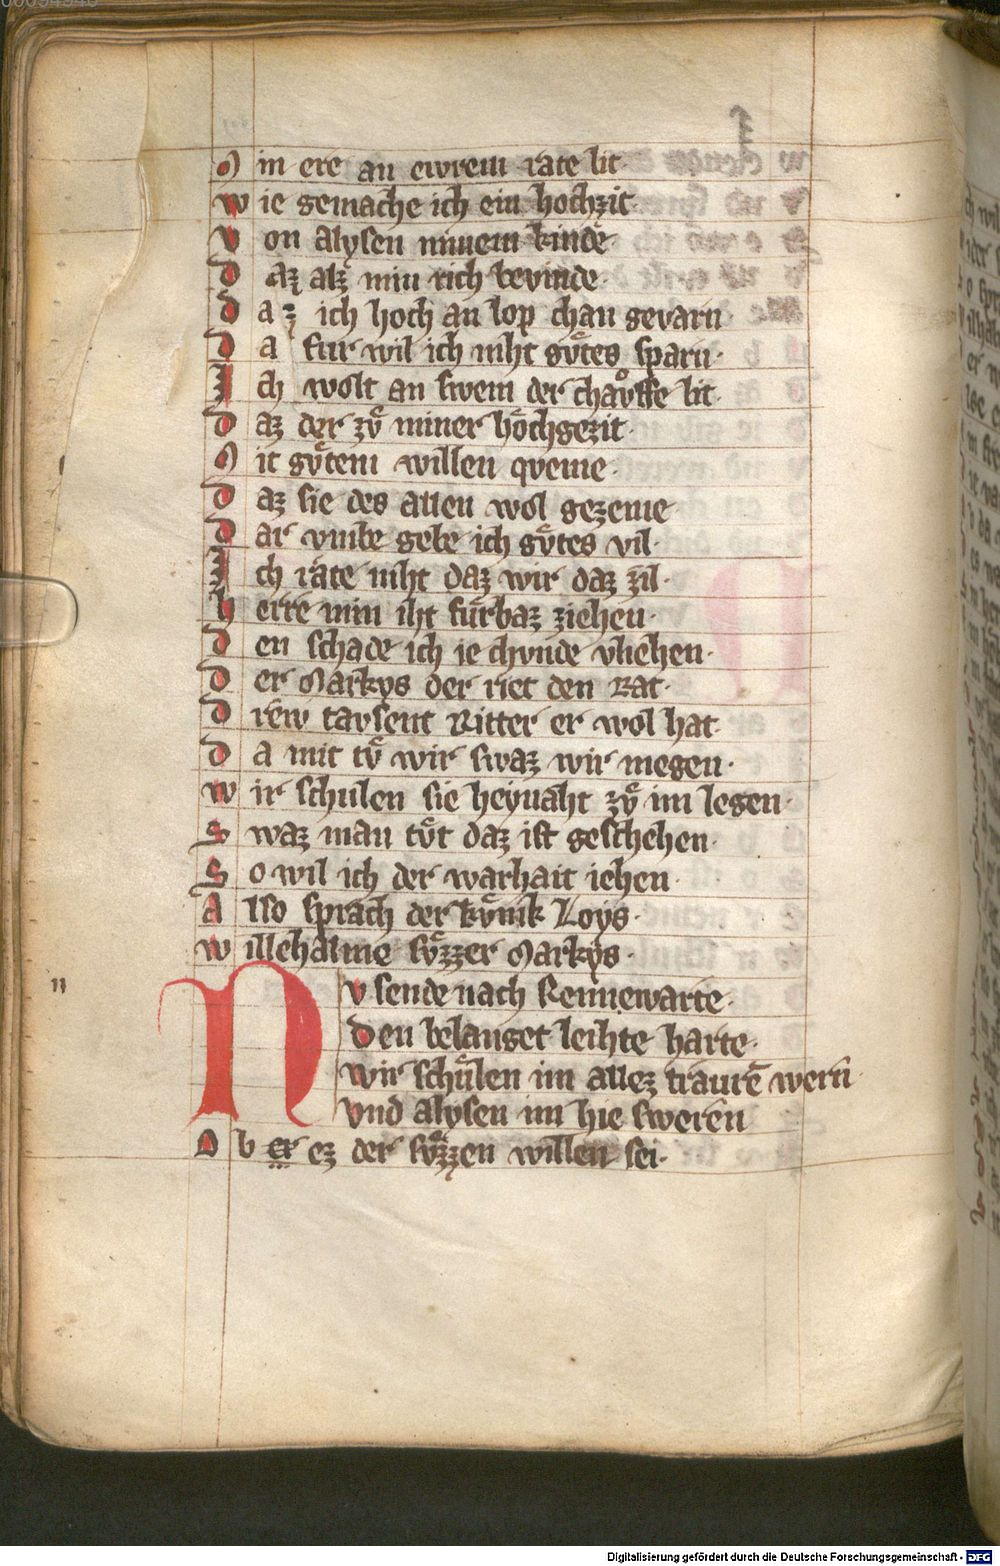 Min ere an ewrem rate lit·
wie gemache ich ein hochzit·
von alysen minem kinde·
daz alz min rich bevinde·
daz ich hoch an lop chan gevarn
da fur wil ich niht gůtes sparn·
Ich wolt an swem der chauffe lit·
daz der zů miner hochgezit·
Mit gůtem willen qveme·
daz sie des allen wol gezeme
dar vmbe gebe ich gůtes vil·
Ich rate niht daz wir daz zil·
herre min iht furbaz ziehen·
den schade ich ie chvnde vliehen·
der Markys der riet den Rat·
drew tavsent Ritter er wol hat·
da mit tů wir swaz wir megen·
wir schulen sie heynaht zů im legen·
Swaz man tůt daz ist geschehen·
So wil ich der warhait iehen·
Also sprach der kůnik Loys·
willehalme sůzzer Markys·
NV sende nach Rennewarte·
Den belanget leihte harte·
wir schulen im allez traurē wern·
vnd alysen im hie swerēn
Ob er ez der sůzzen willen sei·
Digitalisierung gefördert durch die Deutsche Forschungsgemeinschaft - DFG